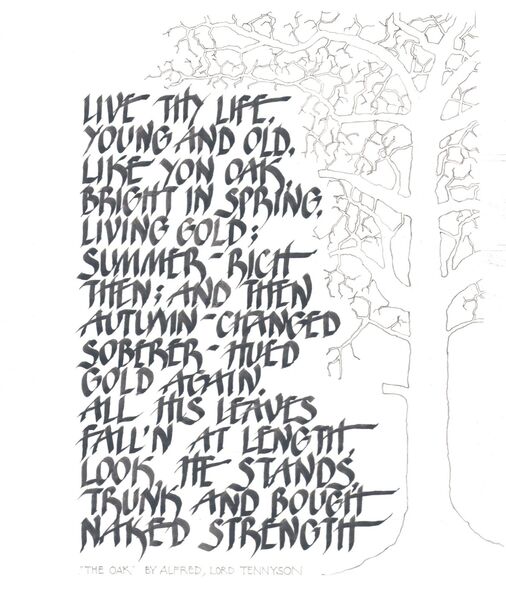 LIVE THY LIFE,
YOUNG AND OLD,
LIKE YON OAK,
BRIGHT IN SPRING,
LIVING GOLD;
SUMMER-RICH
THEN; AND THEN
AUTUMN-CHANGED
SOBERER-HUED
GOLD AGAIN.
ALL HIS LEAVES
FALL'N AT LENGTH,
LOOK, HE STANDS,
TRUNK AND BOUGH
NAKED STRENGTH
"THE OAK" BY ALFRED, LORD TENNYSON